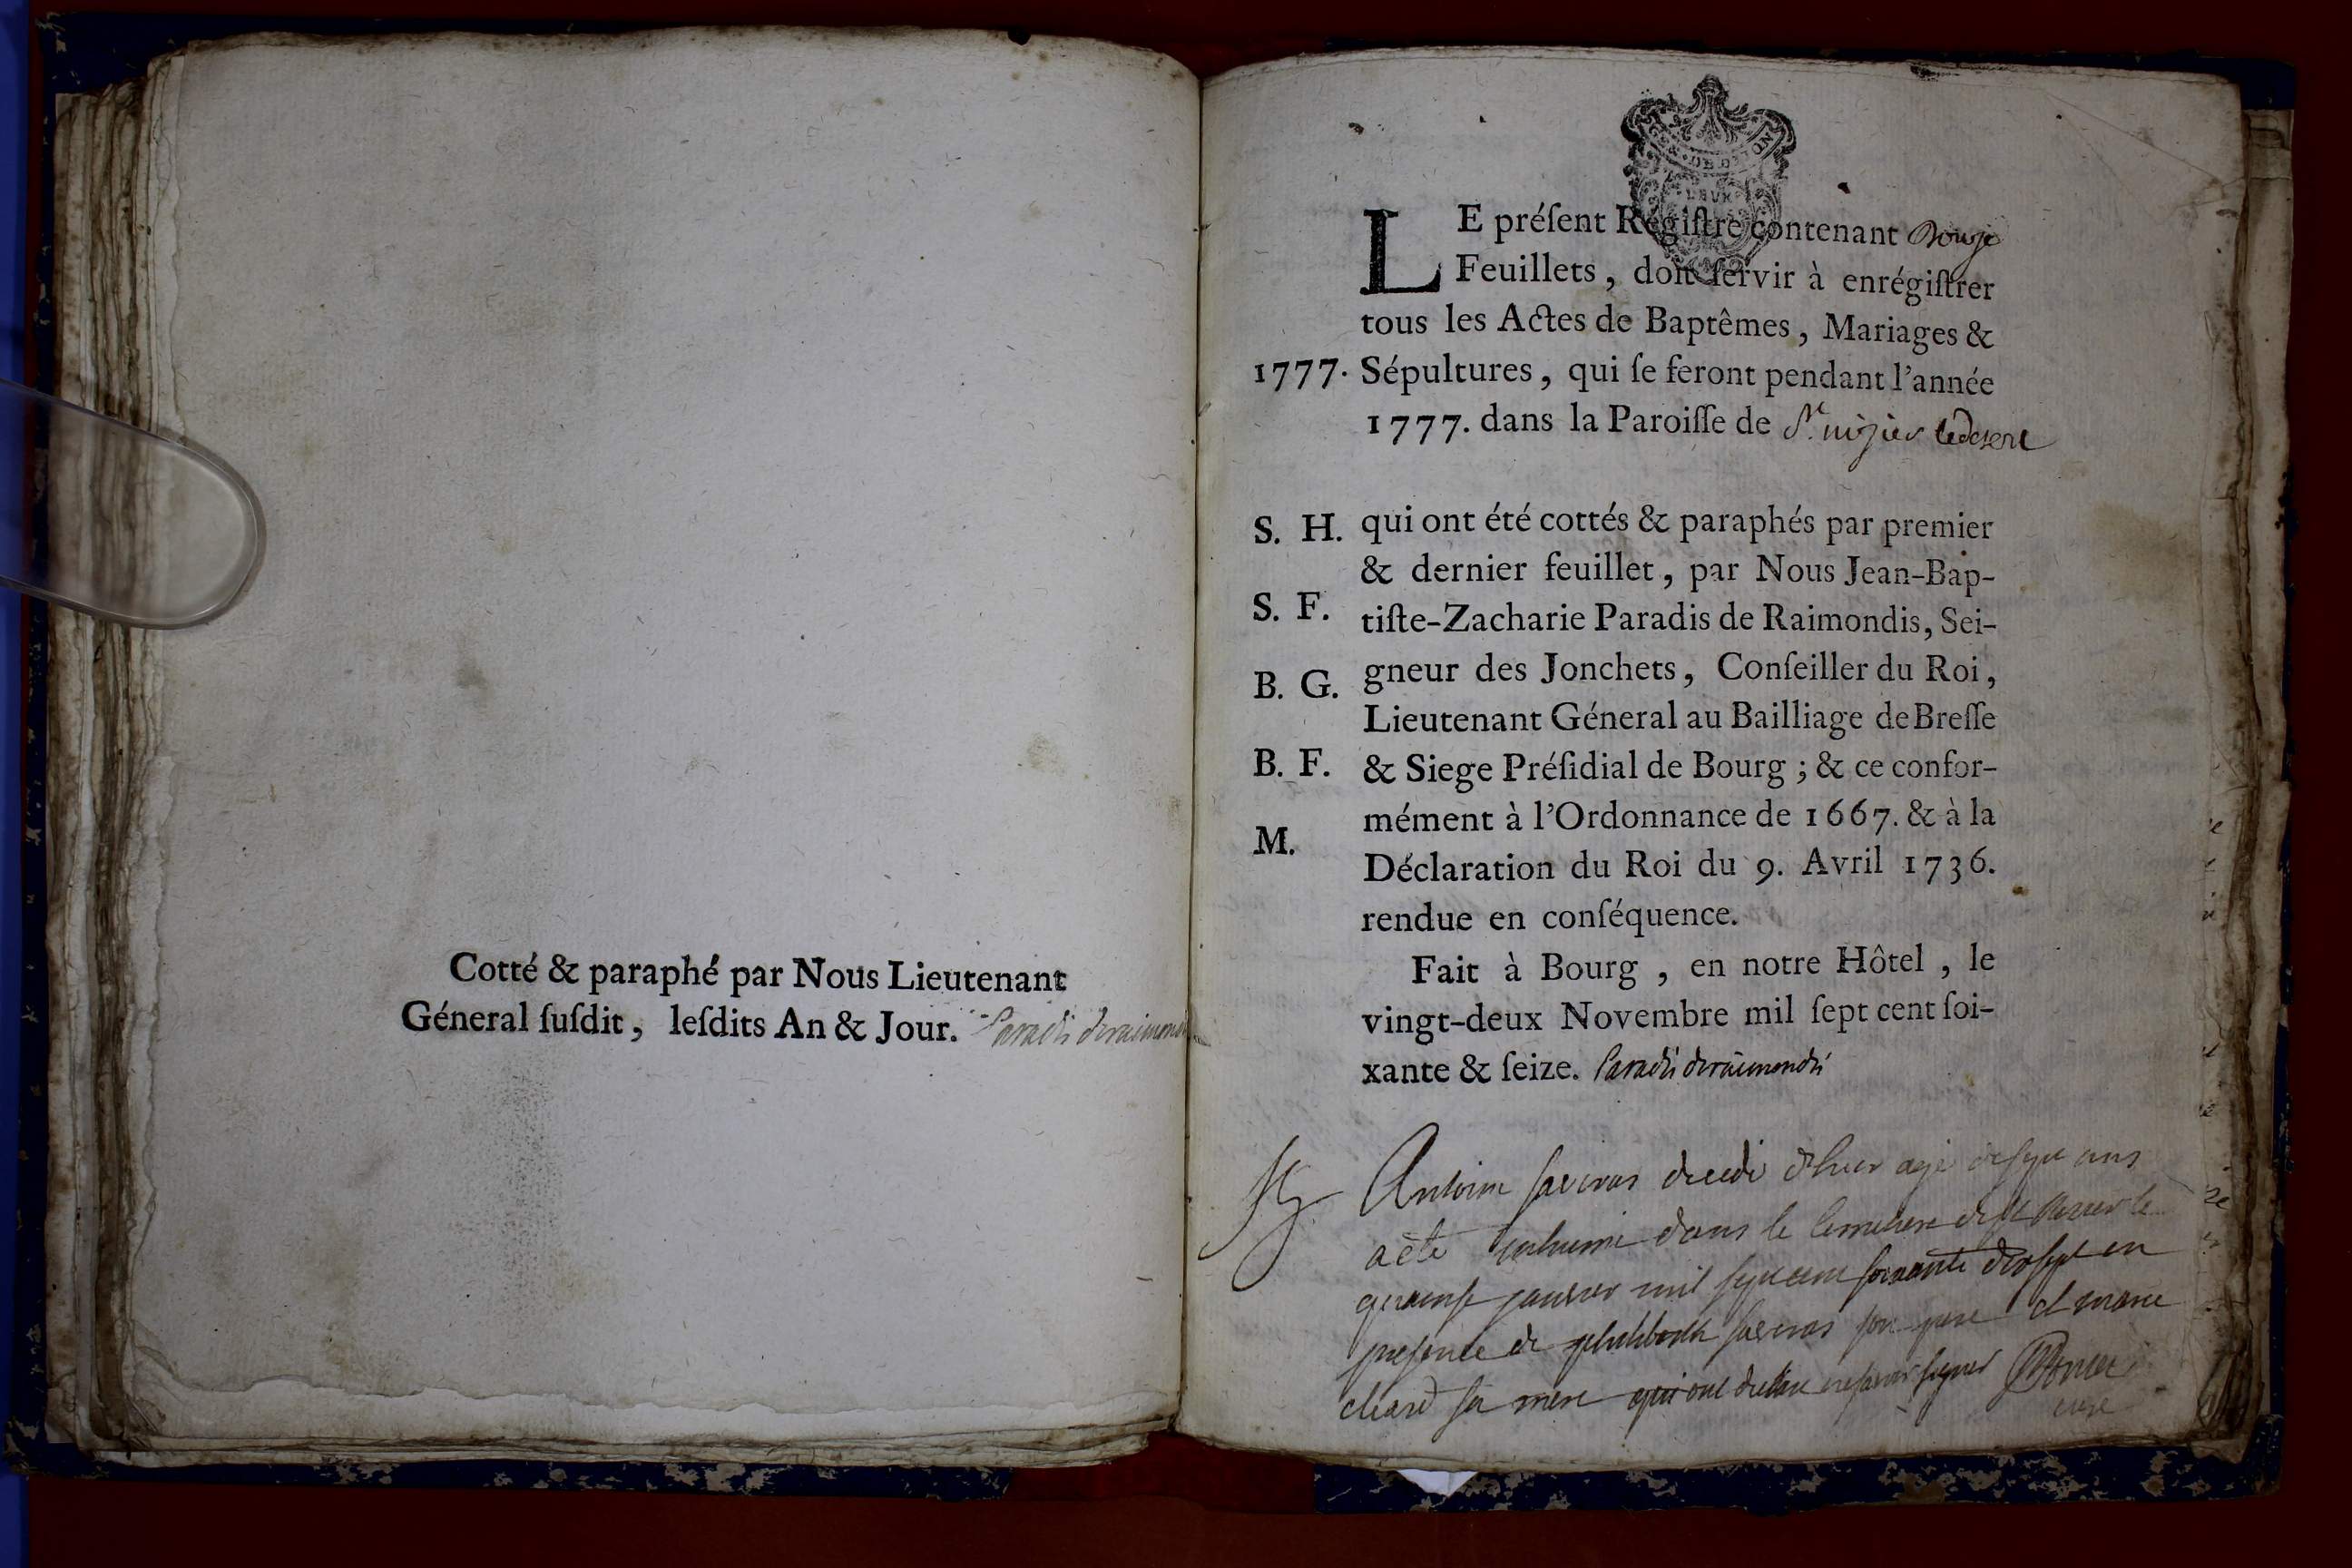 Cotté & paraphé par Nous Lieutenant
Géneral ſuſdit, leſdits An & Jour. Paradis deraimondis
LE préſent Régiſtre contenant Douze
Feuillets, doit ſervir à enrégiſtrer
tous les Actes de Baptêmes, Mariages &
1777. Sépultures, qui ſe feront pendant l'année
1777. dans la Paroiſſe de St. nizier ledesert
S. H. qui ont été cottés & paraphés par premier
& dernier feuillet, par Nous Jean-Bap-
S. F. tiſte-Zacharie Paradis de Raimondis, Sei-
B. G. gneur des Jonchets, Conſeiller du Roi,
Lieutenant Géneral au Bailliage de Breſſe
B. F. & Siege Préſidial de Bourg ; & ce confor-
mément à l'Ordonnance de 1667. & à la
M. Déclaration du Roi du 9. Avril 1736.
rendue en conſéquence.
Fait à Bourg , en notre Hôtel , le
vingt-deux Novembre mil ſept cent ſoi-
xante & ſeize. Paradis deraimondis
Antoine decedé d'hier agé de sept ans
a eté inhumé dans le cemetiere de St nizier le
janvier mil sept cent soixante dixsept en
presence de son pere et marie
sa mere qui ont declaré ne savoir signer
curé